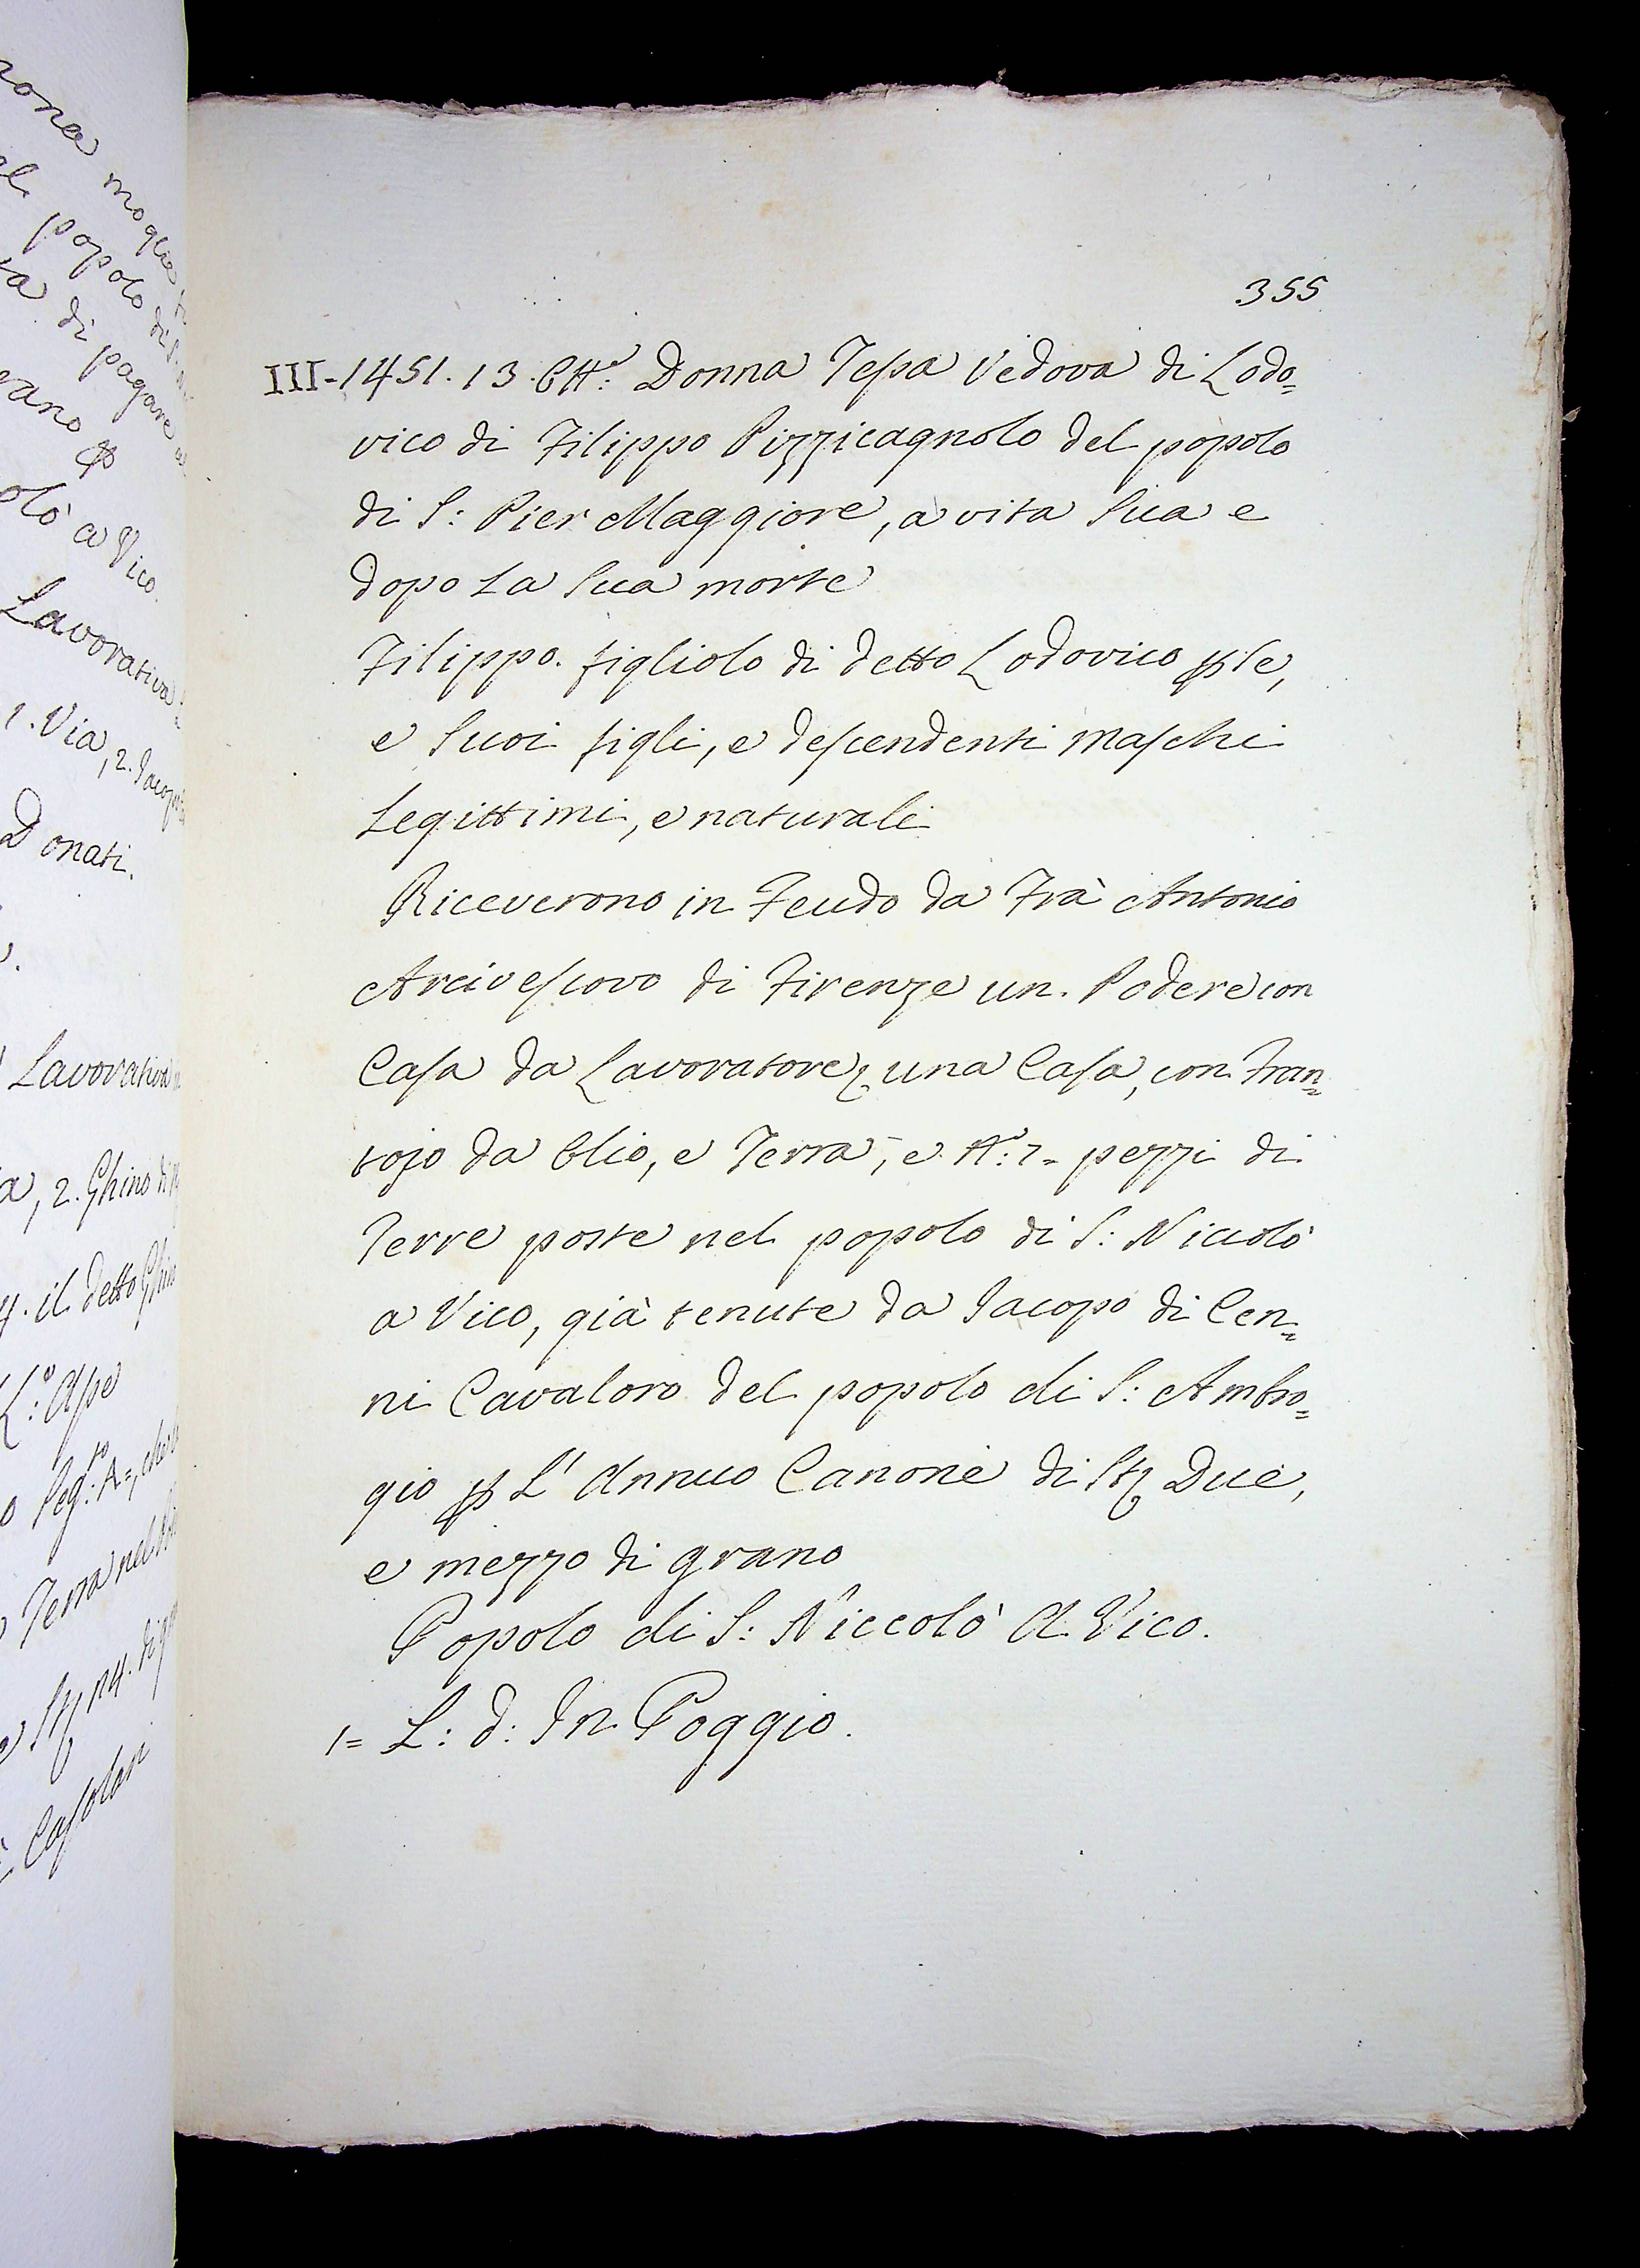 355
III-1451. 13. Ott.e Donna Tessa Vedova di Lodo=
vico di Filippo Pizzicagnolo del popolo
di S: Pier Maggiore, a vita Sua e
dopo La Sua morte
Filippo. figliolo di detto Lodovico per se,
e Suoi figli, e descendenti maschi
Legittimi, e naturali
Riceverono in Feudo da Frà Antonio
Arcivescovo di Firenze un. Podere con
Casa da Lavoratore, una Casa, con Fran=
tojo da Olio, e Terra, e N.o: 7= pezzi di
Terre poste nel popolo di S: Niccolò
a Vico, già tenute da Jacopo di Cen=
ni Cavaloro del popolo di S: Ambro=
gio per L' Annuo Canone di St: Due,
e mezzo di grano
Popolo di S: Niccolò A Vico.
1= L: d: In Poggio.
moglie
popolo di S.
di pagare
olò a Vico.
Lavorativa
1. Via, 2. Jacopo
Donati.
Lavorativa
2. Ghino di
4. il detto Ghino
Terra nel
Casolari